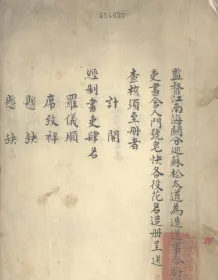 監督江南海關分巡蘇松太道為造送事今將
吏書舍人門號皂快各役花名造冊呈送
查核須至冊者
計開
經制書吏肆名
羅儀順
席致祥
懸缺
懸缺